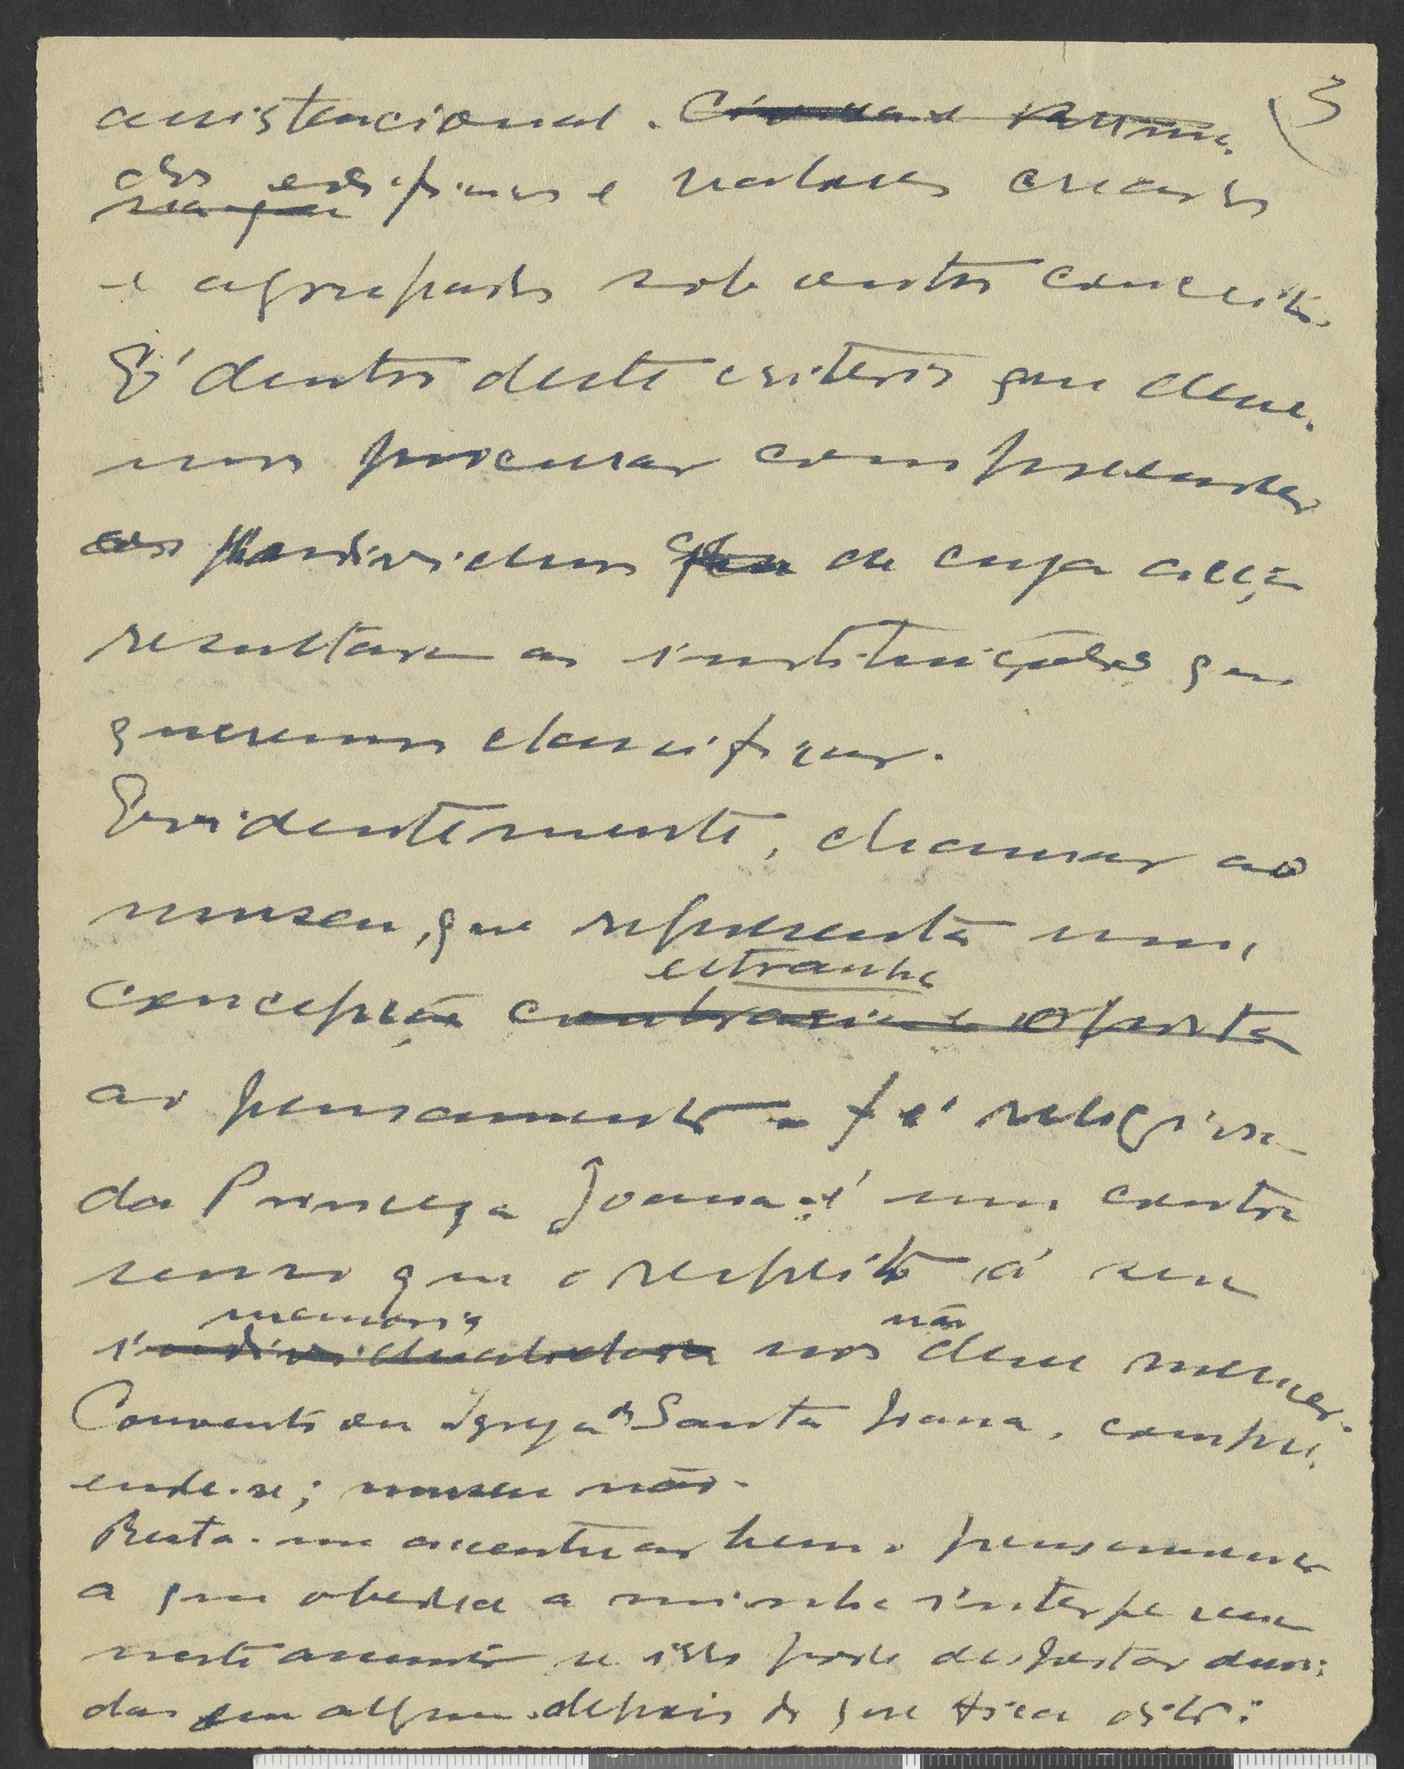 3
assistencional.
dos edificios e valores creados
e agrupados sob outro conceito.
É dentro deste criterio que deve-
mos procurar compreender
os individuos de cuja acção
resultaram as instituições que
queremos classificar.
Evidentemente, chamar ao
museu, que representa uma
concepção contraria e oposta
estranha
ao pensamento e fé religiosa
da Princeza Joana é um contra
senso que o respeito á sua
memoria não
individualidade nos deve merecer.
Convento ou Igreja de Santa Joana, compre-
ende-se; museu não.
Resta-me accentuar bem o pensamento
a que obedece a minha interpe
neste assumto se isso pode despertar duvi-
das em alguem depois do que fica dito: